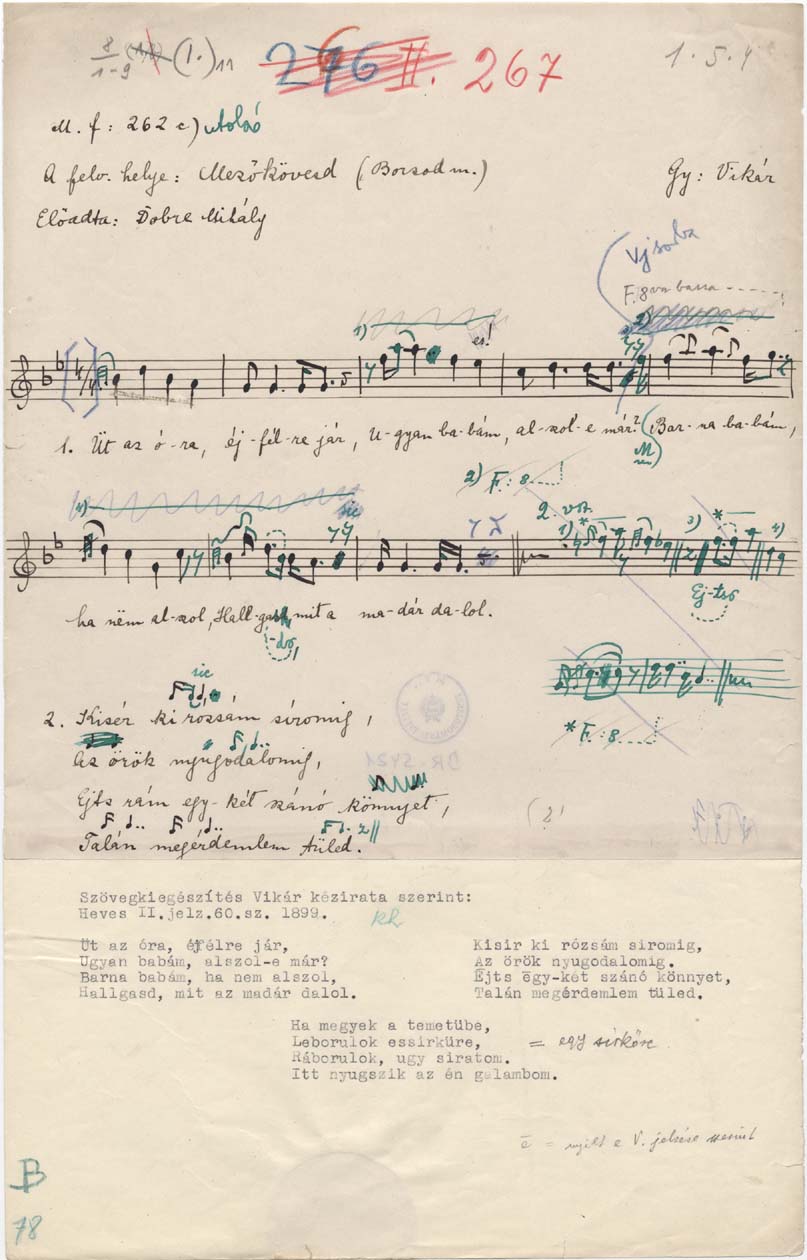 8
1-9
(I.) 11
276 II. 267
1.5.4
M. f: 262 c) utolsó
A felv. helye: Mezőkövesd (Borsod m.)
Gy: Vikár
Előadta: Dobre Mihály
Uj sorba
F. 8va bassa
1)
es!
2)
1. Üt az ó-ra, éj-fél-re jár, U-gyan ba-bám, al-szol-e már? Bar-na ba-bám,
2) F. 8
sic
2. vsz.
1)
3)
*
4)
Ej-tsd
ha nëm al-szol, Hall-gasd, mit a ma-dár da-lol.
sic
2. Kisér ki rozsám síromig,
Az örök nyugodalomig,
Ejts rám egy-két szánó könnyet,
Talán megérdemlem tüled.
* F. 8
BR-5421
(2)
Szövegkiegészítés Vikár kézirata szerint:
Heves II.jelz.60.sz. 1899.
Üt az óra, éjfélre jár,
Ugyan babám, alszol-e már?
Barna babám, ha nem alszol,
Hallgasd, mit az madár dalol.
Kisir ki rózsám siromig,
Az örök nyugodalomig.
Ējts ēgy-két szánó könnyet,
Talán megérdemlem tüled.
Ha megyek a temetübe,
Leborulok essirküre, = egy sirkőre
Ráborulok, ugy siratom.
Itt nyugszik az én galambom.
ē = nyilt e V. jelzése szerint
B
78